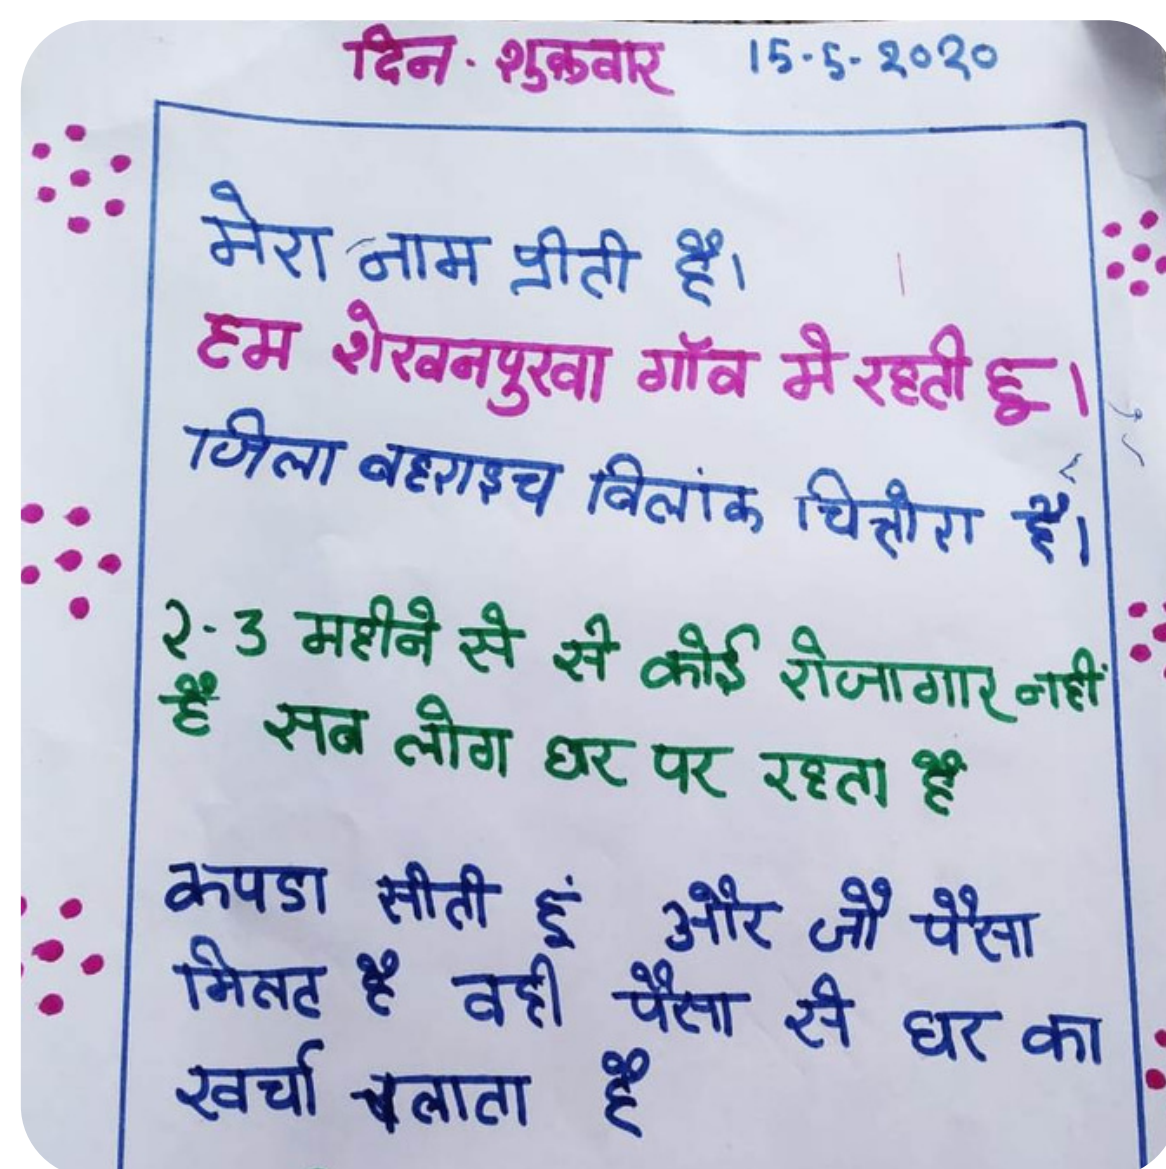 दिन · शुक्रवार 15-5-२०२०
मेरा नाम प्रीती है।
हम शेखनपुरवा गाँव मे रहती हू।
जिला बहराइच विलांक चित्तोरा है।
२-3 महीने से से कोई रोजागार नहीं
हैं सब लोग घर पर रहता है
कपडा सीती हूं और जौ पैसा
मितट है वही पैसा से घर का
खर्चा चलाता है